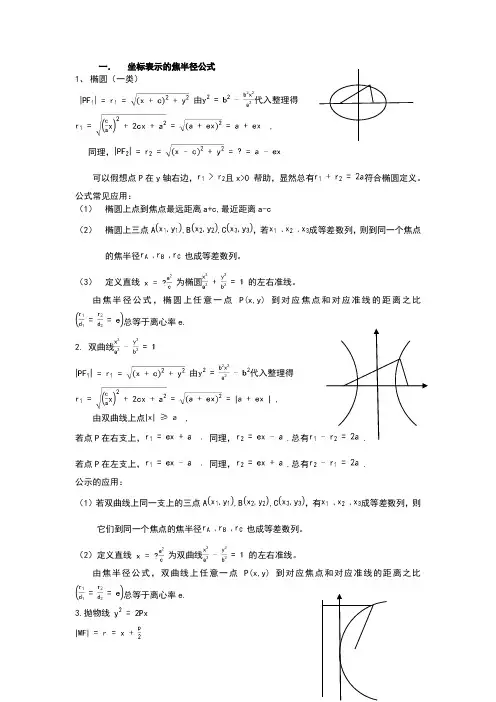 一. 坐标表示的焦半径公式
1、 椭圆（一类）
|PF₁| = r₁ = √((x + c)² + y²) 由y² = b² - b²x²/a² 代入整理得
r₁ = √((c/a x)² + 2cx + a²) = √((a + ex)²) = a + ex .
同理，|PF₂| = r₂ = √((x - c)² + y²) = ? = a - ex
可以假想点 P 在 y 轴右边，r₁ > r₂且 x>0 帮助，显然总有r₁ + r₂ = 2a符合椭圆定义。
公式常见应用：
（1） 椭圆上点到焦点最远距离 a+c,最近距离 a-c
（2） 椭圆上三点 A(x₁, y₁),B(x₂, y₂),C(x₃, y₃)，若x₁ ,x₂ ,x₃成等差数列，则到同一个焦点
的焦半径r_A ,r_B ,r_C 也成等差数列。
（3） 定义直线 x = ?a²/c 为椭圆x²/a² + y²/b² = 1 的左右准线。
由焦半径公式，椭圆上任意一点 P(x,y) 到对应焦点和对应准线的距离之比
(r₁/d₁ = r₂/d₂ = e)总等于离心率 e.
2. 双曲线x²/a² - y²/b² = 1
|PF₁| = r₁ = √((x + c)² + y²) 由y² = b²x²/a² - b²代入整理得
r₁ = √((c/a x)² + 2cx + a²) = √((a + ex)²) = |a + ex | .
由双曲线上点|x| ≥ a .
若点 P 在右支上，r₁ = ex + a . 同理，r₂ = ex - a .总有r₁ - r₂ = 2a .
若点 P 在左支上，r₁ = ex - a . 同理，r₂ = ex + a .总有r₂ - r₁ = 2a .
公示的应用：
（1）若双曲线上同一支上的三点 A(x₁, y₁),B(x₂, y₂),C(x₃, y₃)，有x₁ ,x₂ ,x₃成等差数列，则
它们到同一个焦点的焦半径r_A ,r_B ,r_C 也成等差数列。
（2）定义直线 x = ?a²/c 为双曲线x²/a² - y²/b² = 1 的左右准线。
由焦半径公式，双曲线上任意一点 P(x,y) 到对应焦点和对应准线的距离之比
(r₁/d₁ = r₂/d₂ = e)总等于离心率 e.
3.抛物线 y² = 2Px
|MF| = r = x + p/2